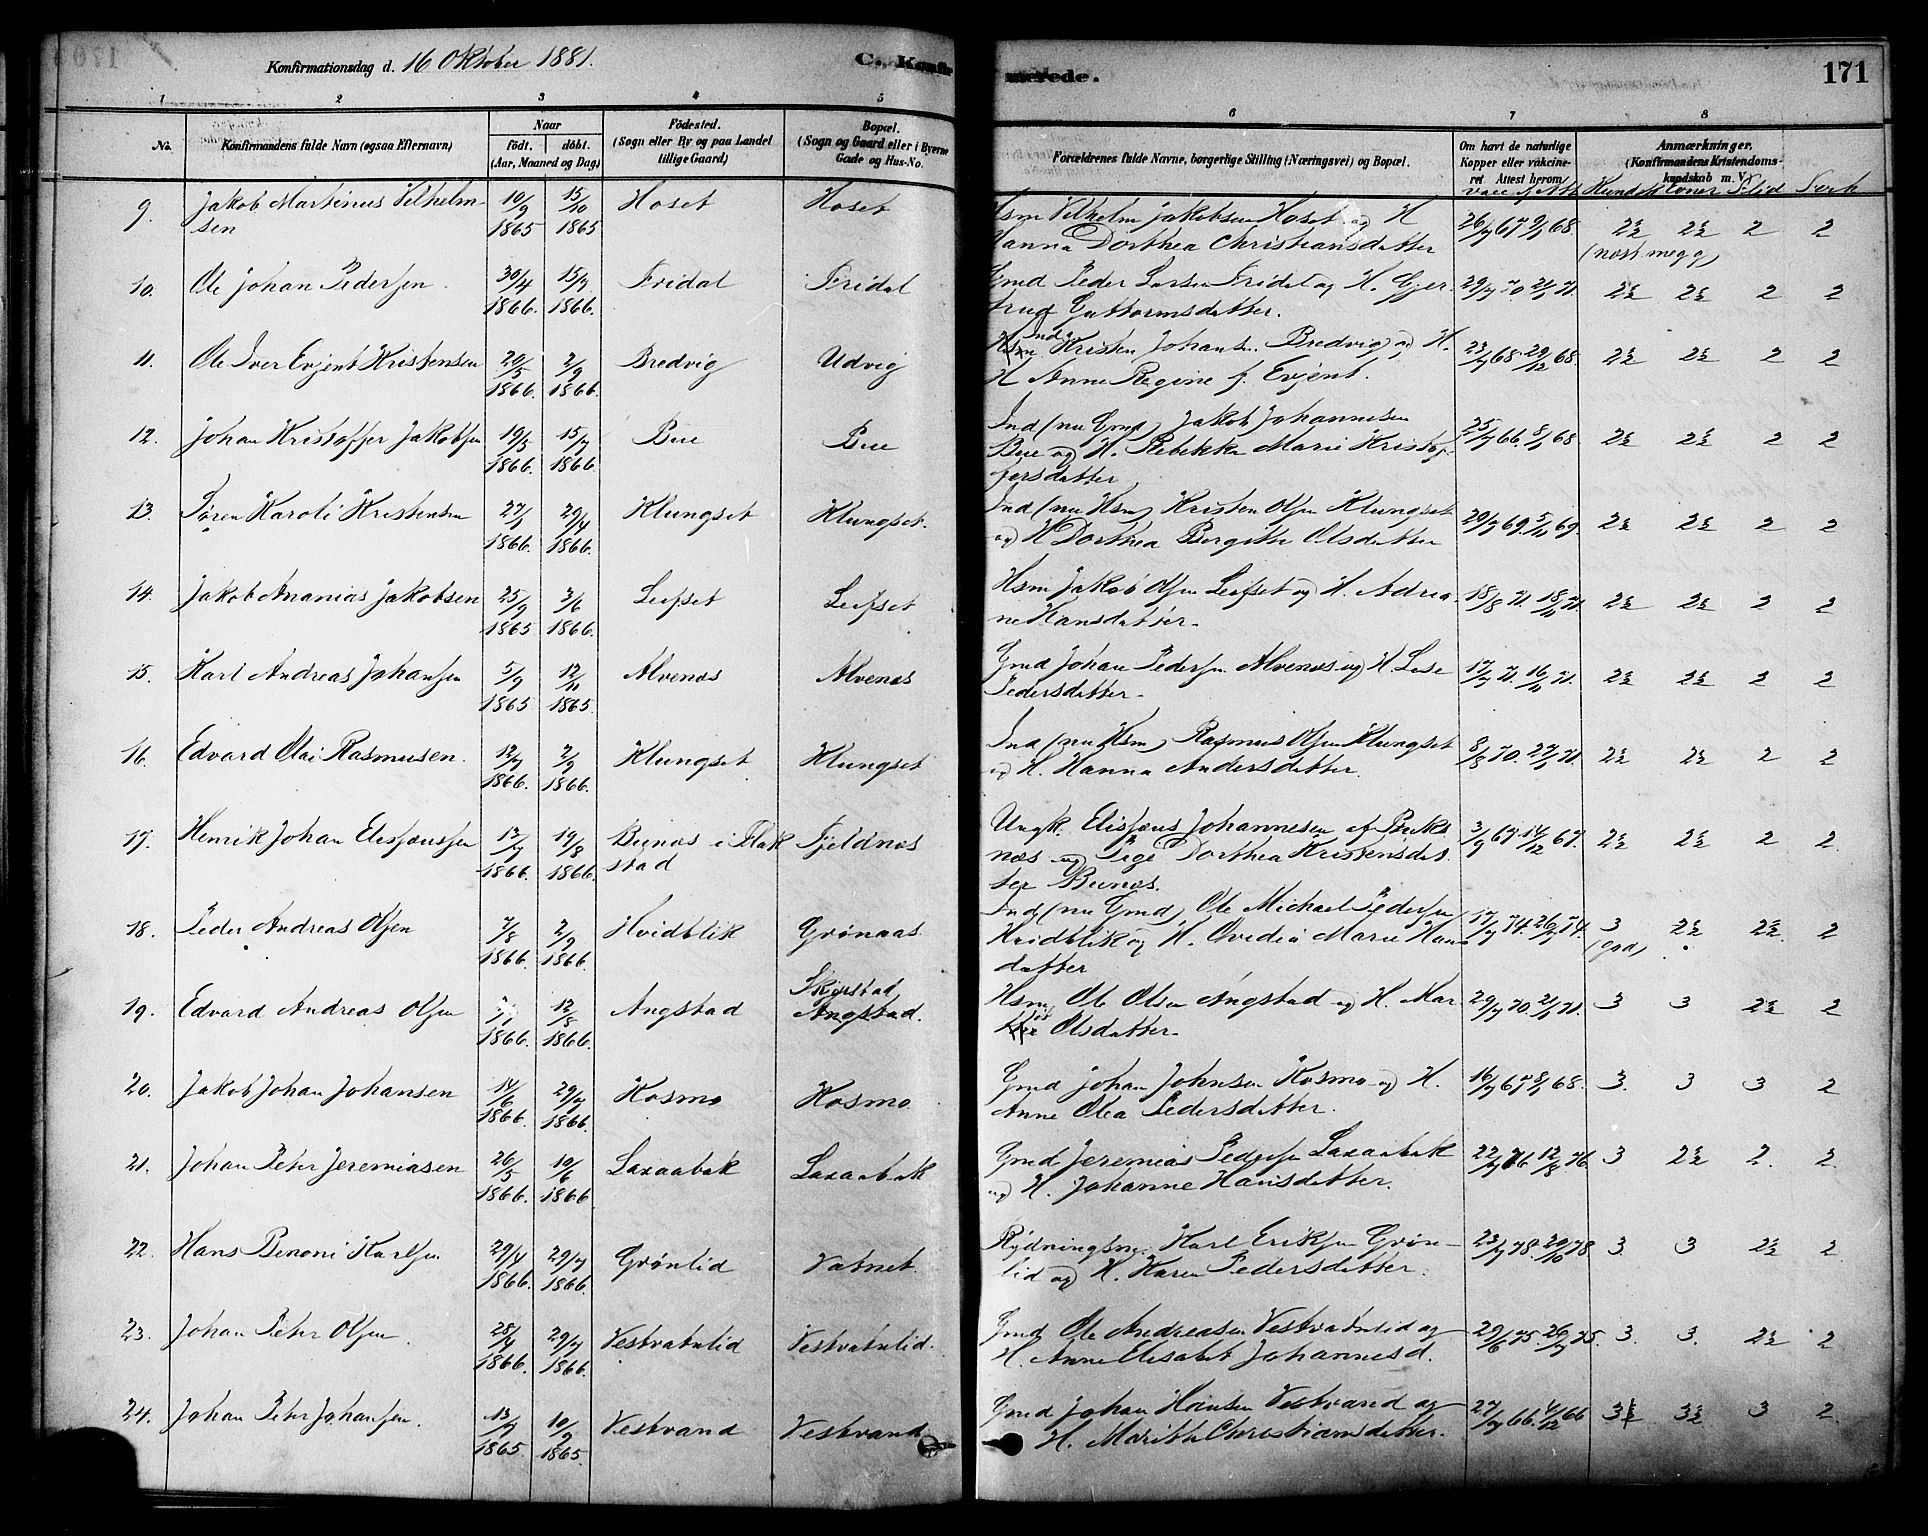 Konfirmationsdag d. 16 Oktober 1881.
C. Konfirmerede.
171
1 2 3 4 5 6 7 8
No. Konfirmandens fulde Navn (ogsaa Efternavn) Naar Födt. döbt. (Aar, Maaned og Dag) Födested. (Sogn eller By og paa Landet tillige Gaard) Bopæl. (Sogn og Gaard eller i Byerne Gade og Hus-No. Forældrenes fulde Navne, borgerlige Stilling (Næringsvei) og Bopæl. Om havt de naturlige Kopper eller vakcineret Attest herom Anmærkninger. (Konfirmandens Kristendomskundskab m. V.)
9. Jakob Martinius Vilhelmsen 10/9 1865 15/10 1865 Hoset Hoset Hsm Vilhelm Jakobsen Hoset og H
Hanna Dorthea Christiansdatter 2½ 2½ 2 2
10. Ole Johan Pedersen 30/4 1866. 15/7 1866. Fridal Fridal Gmd Peder Larsen Fridal og H. Gjer
trud Guttormsdatter. 2½ 2½ 2 2
11. Ole Iver Evjent Kristensen 20/5 1866. 2/9 1866. Bredvig Udvig Ind Kristen Johansen Bredvig og H.
H Anne Regine f. Evjent. 2½ 2½ 2 2
12. Johan Kristoffer Jakobsen 19/5 1866. 15/7 1866. Bue Bue Ind (nu Gmd) Jakob Johannesen
Bue og H. Rebekka Marie Kristof
fersdatter 2½ 2½ 2 2
13. Søren Karoli Kristensen 27/1 1866. 29/4 1866. Klungset Klungset. Ind (nu Hsm) Kristen Olsen Klungset
og H Dorthea Bergitte Olsdatter 2½ 2½ 2 2
14. Jakob Ananias Jakobsen 25/9 1865 3/6 1866. Leifset Leifset Hsm Jakob Olsen Leifset og H. Adria
ne Hansdatter. 2½ 2½ 2 2
15. Karl Andreas Johansen 5/9 1865 12/11 1865. Alvenes Alvenes Gmd Johan Pedersen Alvenes og H Lise
Pedersdatter. 2½ 2½ 2 2
16. Edvard Olai Rasmussen. 12/7 1866. 2/9 1866. Klungset Klungset Ind (nu Hsm) Rasmus Olsen Klungset
og H. Hanna Andersdatter. 2½ 2½ 2 2
17. Henrik Johan Elisæussen 13/7 1866. 19/8 1866. Bunæs i Flakstad Fjeldnæs Ungk. Elisæus Johannesen af Buks
næs og Pige Dorthea Kristensdat
ter Bunæs. 2½ 2½ 2 2.
18. Peder Andreas Olsen 7/8 1866. 2/9 1866. Hvidblik Grønaas. Ind (nu Gmd) Ole Michael Pedersen
Hvidblik og H. Ovedia Marie Hans
datter 3 (god) 2½ 2½ 2
19. Edvard Andreas Olsen 1866. 12/8 1866. Angstad Skjerstad Angstad. Hsm Ole Olsen Angstad og H. Mar
Olsdatter. 3 3 2½ 2
20. Jakob Johan Johansen 14/6 1866. 29/7 1866. Kosmo Kosmo. Gmd Johan Johnsen Kosmo og H.
Anne Olea Pedersdatter. 3. 3 3 2
21. Johan Peter Jeremiasen 26/5 1866. 10/6 1866. Laxaabak Laxaabak Gmd Jeremias Pedersen Laxaabak
og H. Johanne Hansdatter. 3 2½ 2. 2.
22. Hans Benoni Karlsen 29/4 1866. 29/7 1866. Grønlid Vatnet. Rydningsm. Karl Eriksen Grøn-
lid og H. Karen Pedersdatter. 3. 3 2½ 2
23. Johan Peter Olsen. 28/4 1866. 29/7 1866. Vestvatnlid Vestvatnlid. Gmd Ole Andreasen Vestvatnlid og
H. Anne Elisabet Johannesd. 3. 3. 2½ 2
24. Johan Peter Johansen. 13/7 1865. 10/9 1865. Vestvand Vestvand Gmd Johan Hansen Vestvand og
H. Marith Christiansdatter. 3½ 3½ 3 2.